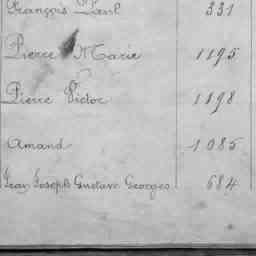 François Paul 331
Pierre Marie 1195
Pierre Victor 1198
Amand 1085
Jean Joseph Gustave Georges 684